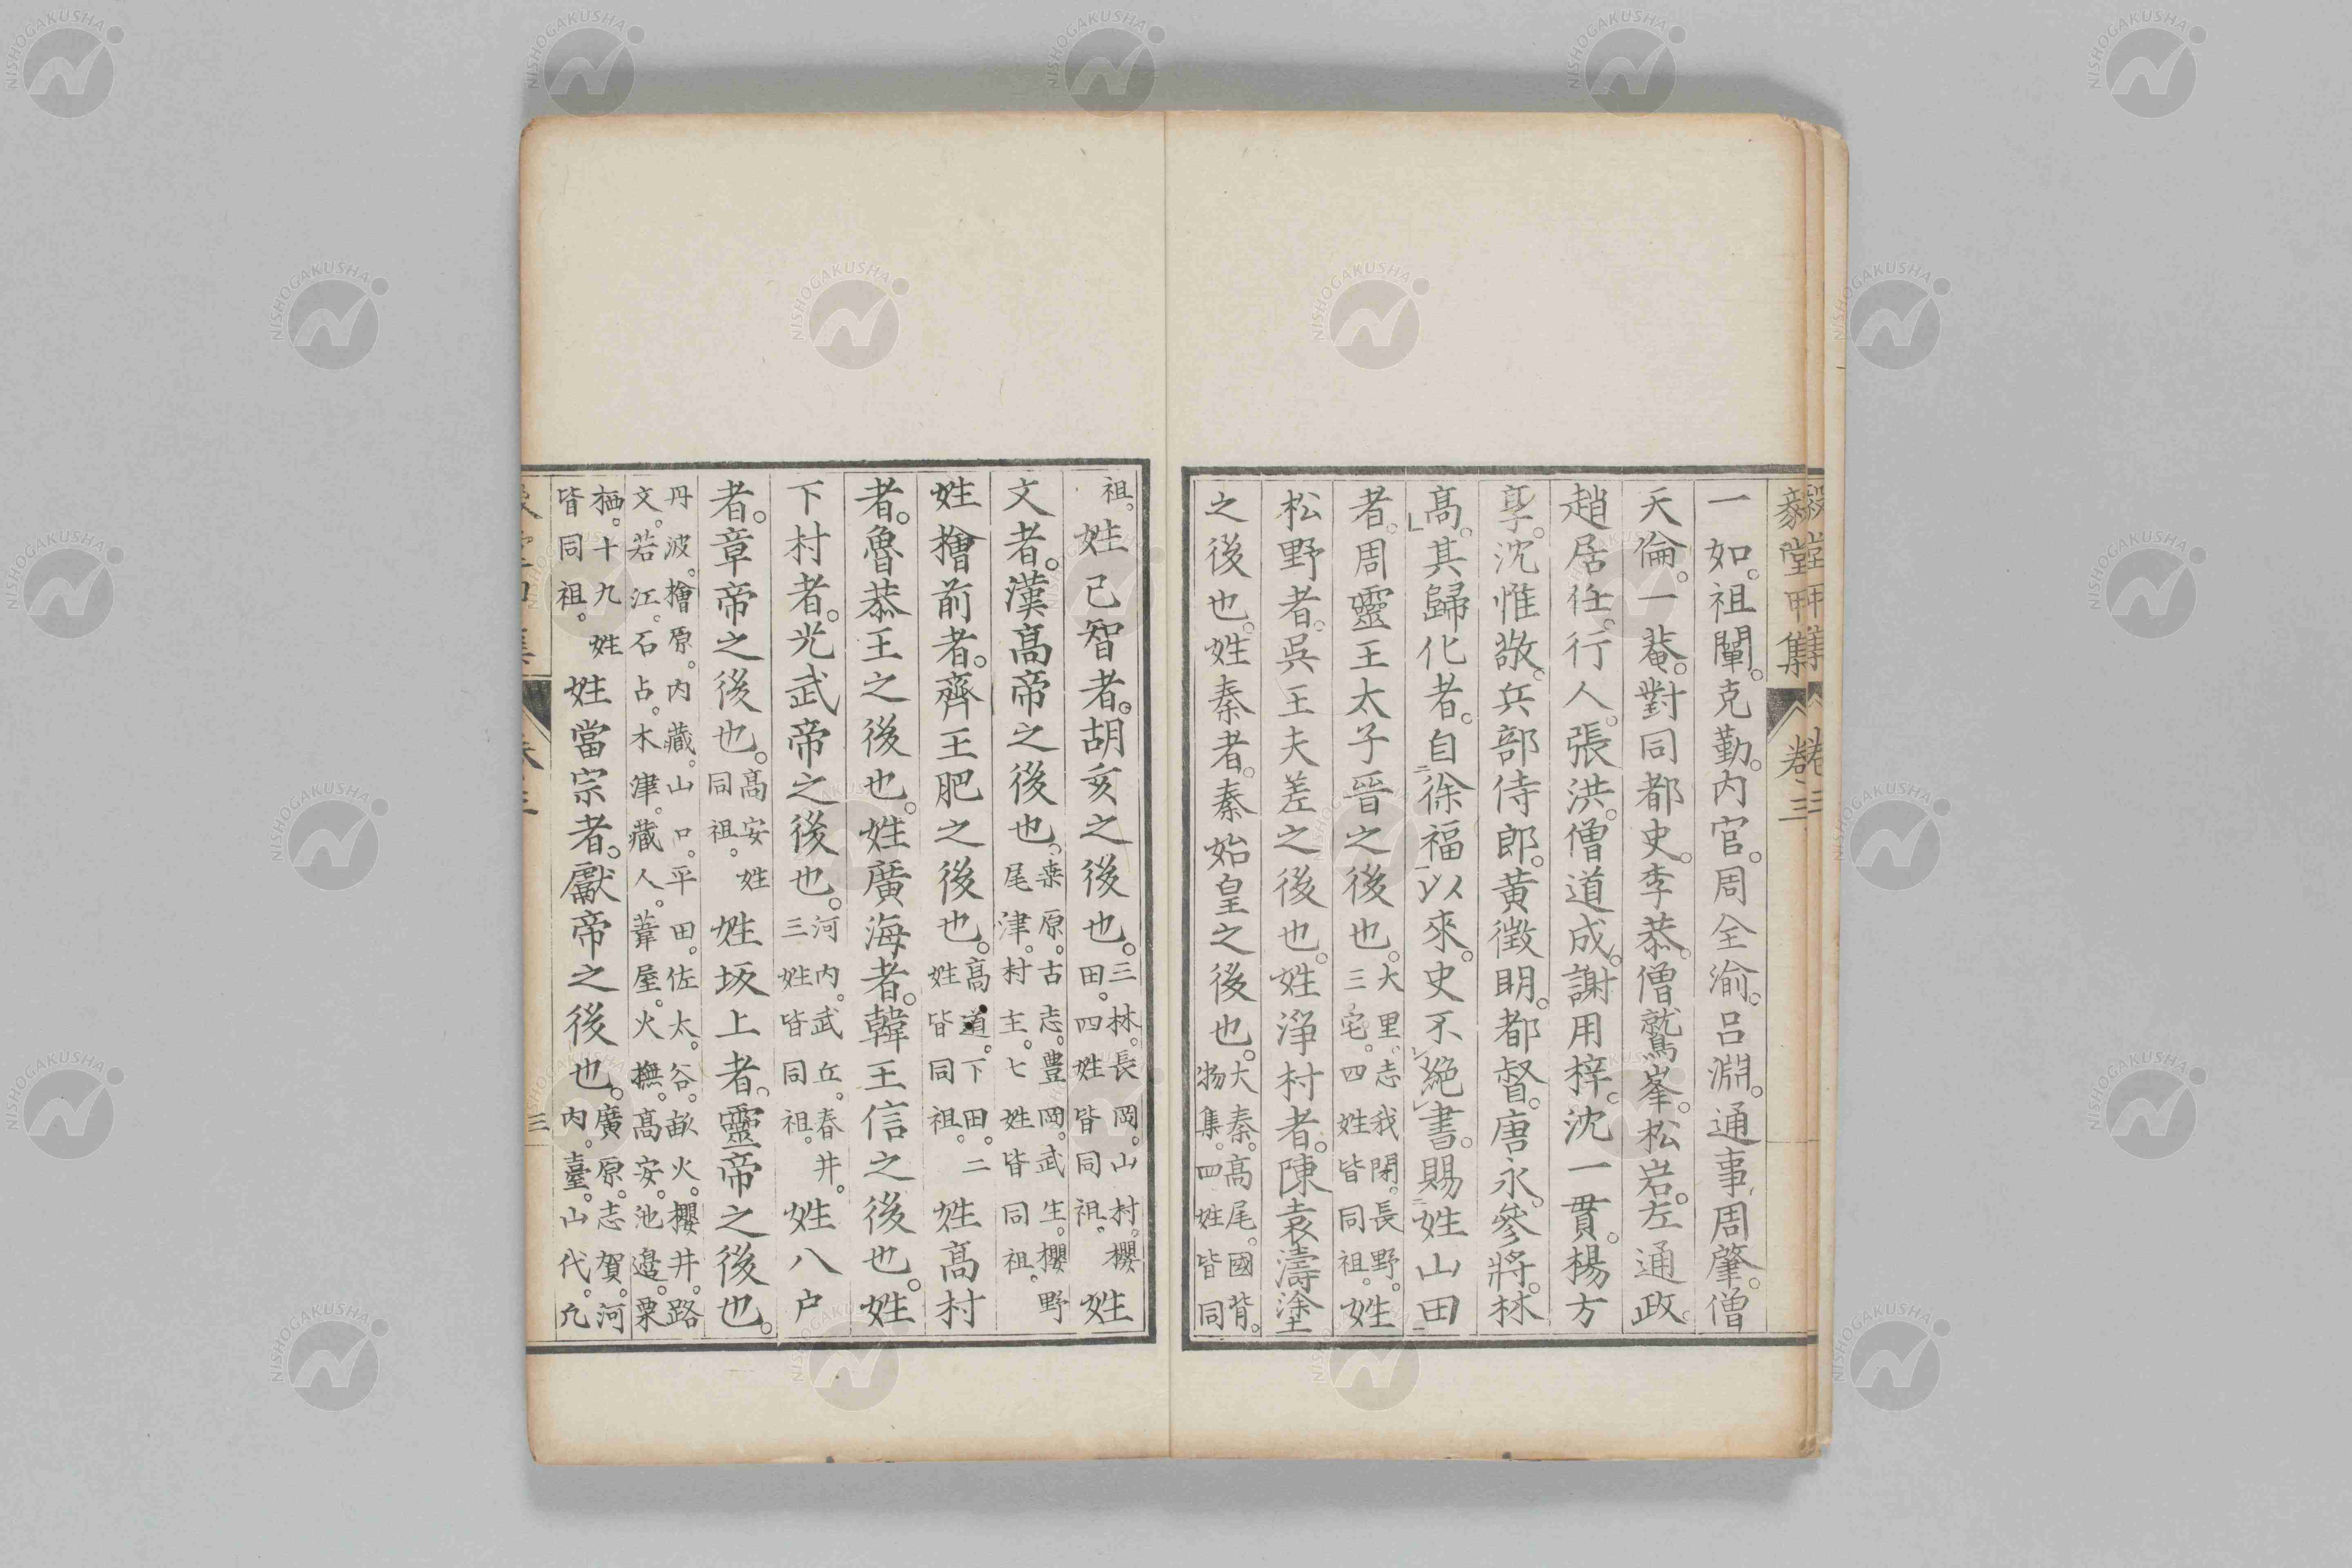 毅堂甲集 卷三
一如。祖闡。克勤。內官。周全渝。呂淵。通事周肇。僧
天倫。一菴。對同都史。李恭。僧鷲峯。松岩。左通政。
趙居任。行人。張洪。僧道成。謝用梓。沈一貫。楊方
亨。沈惟敬。兵部侍郎。黃徵明。都督。唐永。參將。林
高。其歸化者。自徐福以來。史不絕書。賜姓山田
者。周靈王太子晉之後也。大里。志我閉。長野。三宅。四姓皆同祖。姓
松野者。吳王夫差之後也。姓淨村者。陳袁濤塗
之後也。姓秦者。秦始皇之後也。大秦。高尾。國背。物集。四姓皆同
祖。姓己智者。胡亥之後也。三林。長岡。山村。櫻田。四姓皆同祖。姓
文者。漢高帝之後也。桒原。古志。豊岡。武生。櫻野尾津。村主。七姓皆同祖。
姓檜前者。齊王肥之後也。高道。下田。二姓皆同祖。姓高村
者。魯恭王之後也。姓廣海者。韓王信之後也。姓
下村者。光武帝之後也。河內。武丘。春井。三姓皆同祖。姓八户
者。章帝之後也。高安姓同祖。姓坂上者。靈帝之後也。
丹波。檜原。內藏。山口。平田。佐太。谷。畝火。櫻井。路
文。若江。石占。木津。藏人。葦屋。火撫。高安。池邉。栗
栖。十九姓皆同祖。姓當宗者。獻帝之後也。廣原。志賀。河內。臺。山代。凡
三
NISHOGAKUSHA